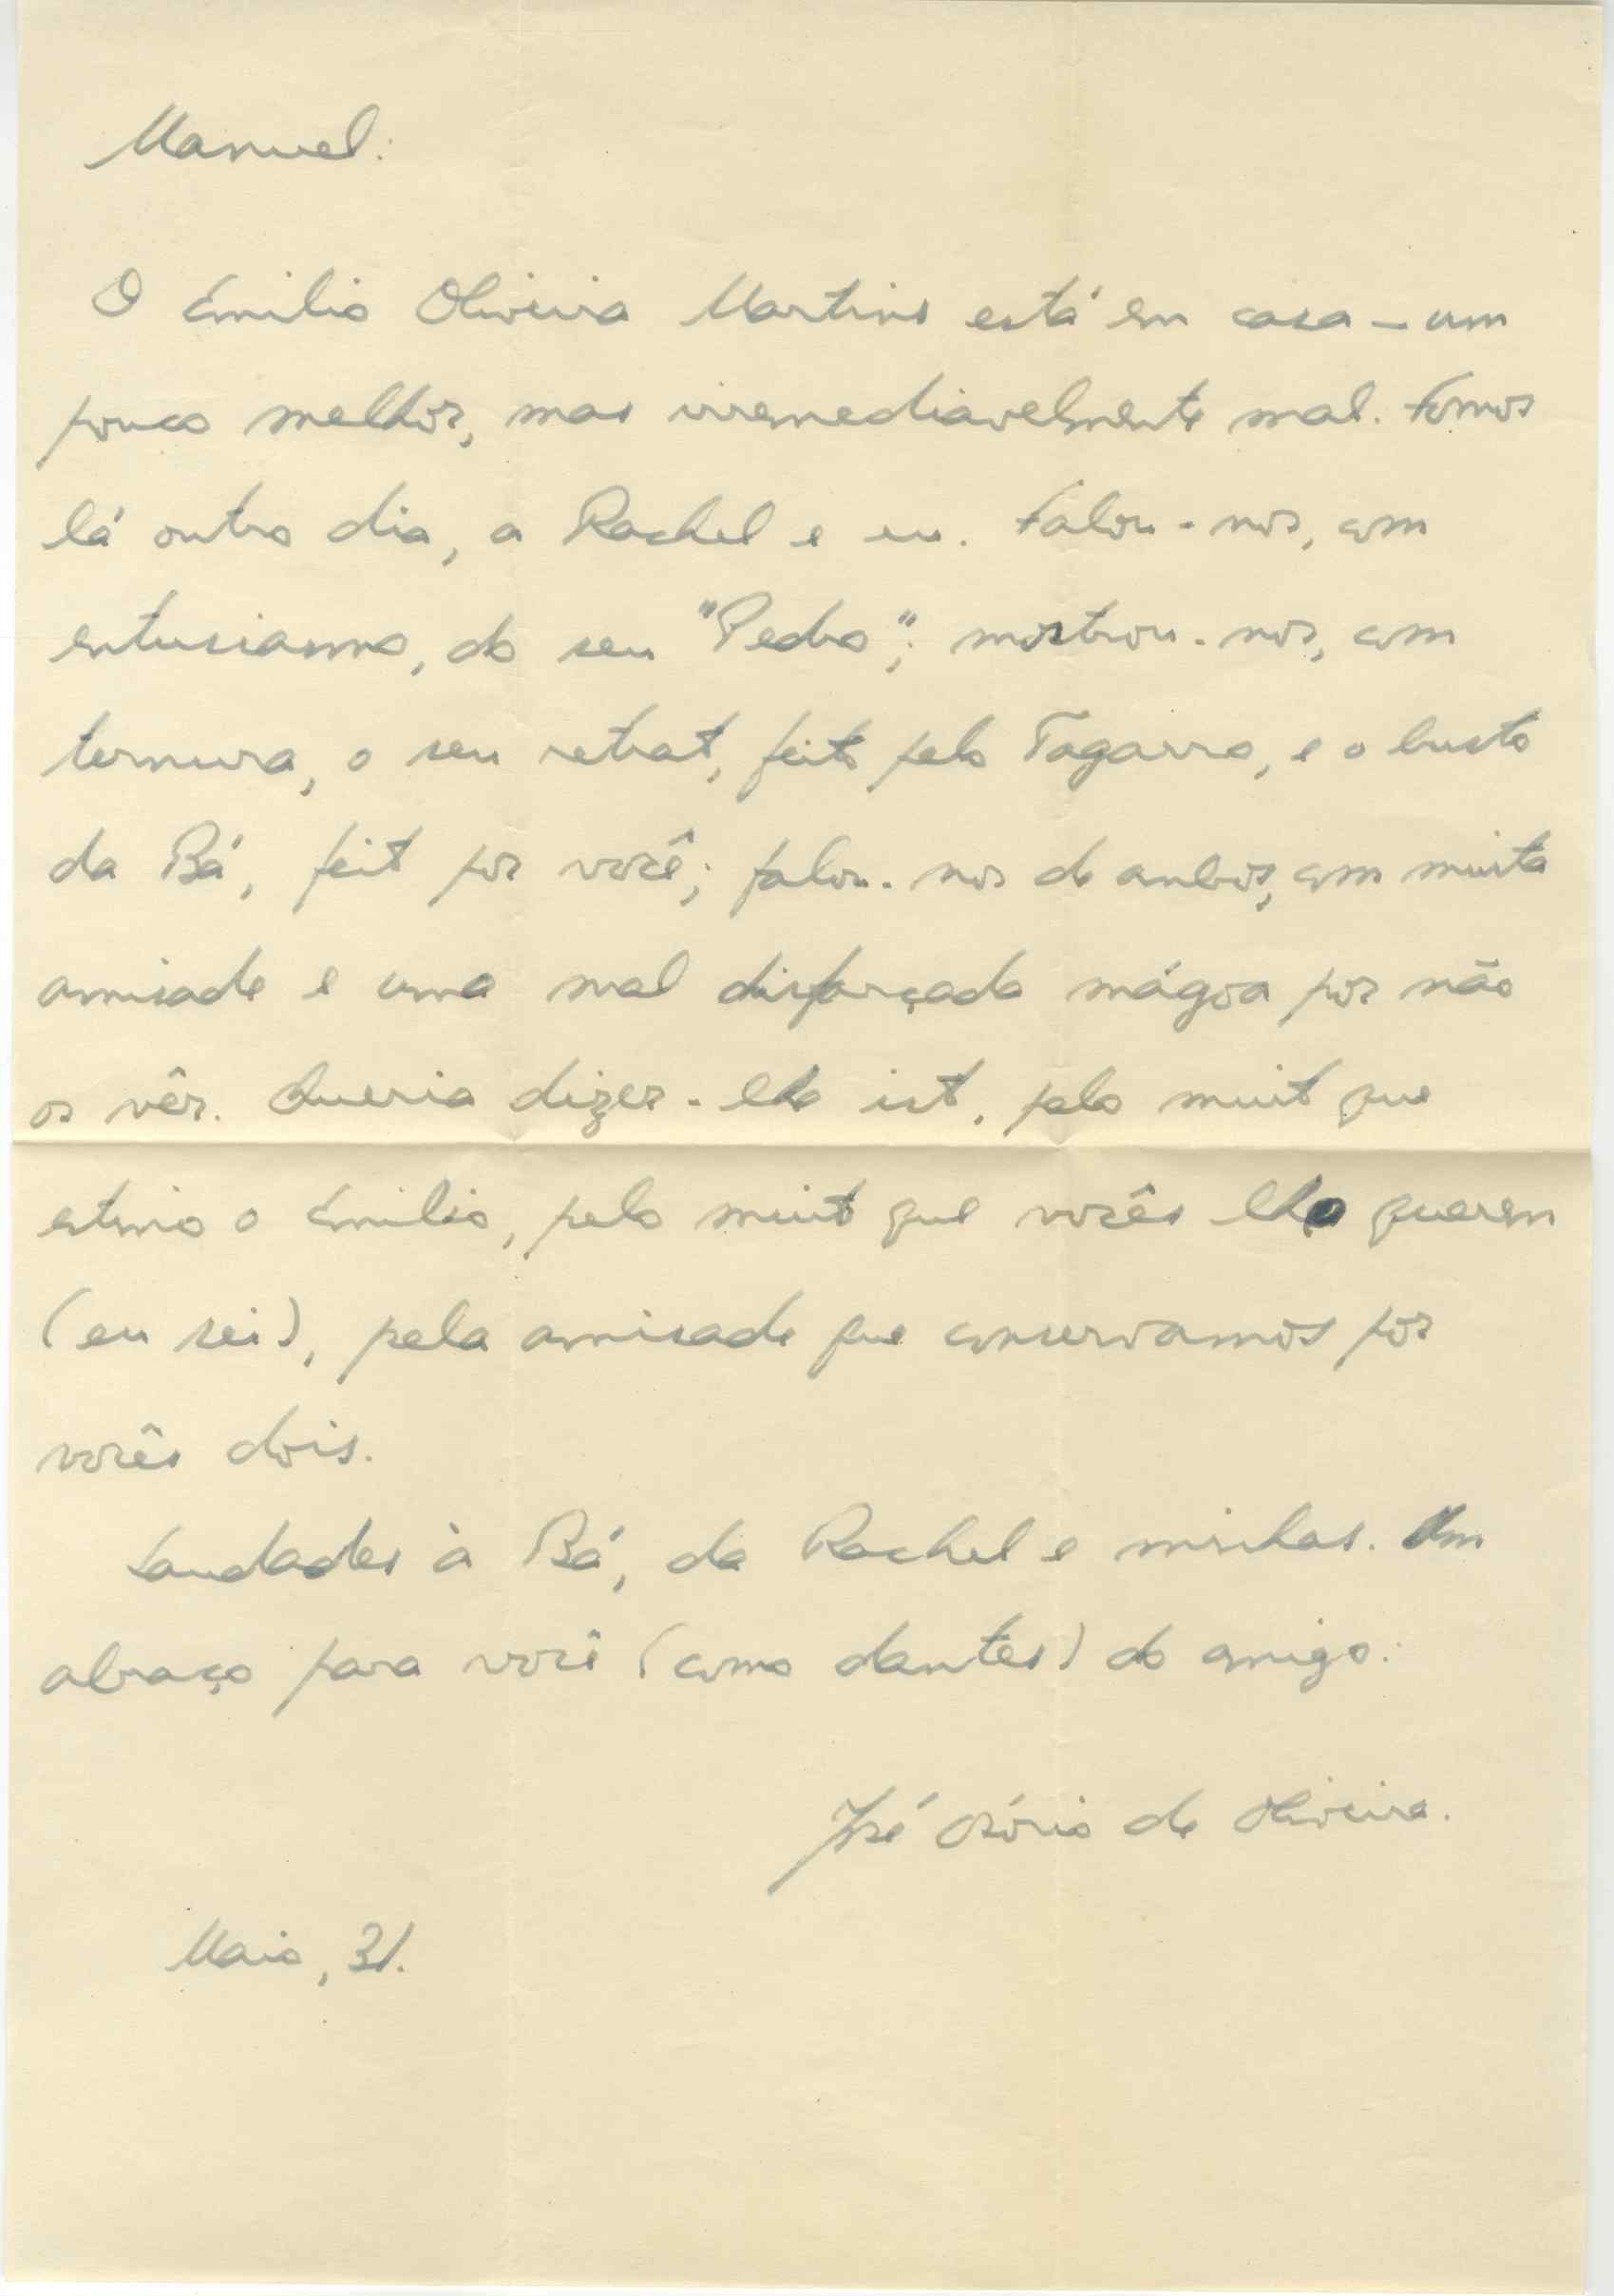 Manuel:
O Emilio Oliveira Martins está em casa – um
pouco melhor, mas irremediavelmente mal. Fomos
lá outro dia, a Rachel e eu. Falou-nos, com
entusiasmo, do seu "Pedro"; mostrou-nos, com
ternura, o seu retrato, feito pelo Tagarro, e o busto
da Bá, feito por você; falou-nos de ambos, com muita
amisade e uma mal disfarçada mágoa por não
os vêr. Queria dizer-lhe isto, pelo muito que
estimo o Emilio, pelo muito que vocês lhe querem
(eu sei), pela amisade que conservamos por
vocês dois.
Saudades à Bá, da Rachel e minhas. Um
abraço para você (como dantes) do amigo:
José Osório de Oliveira.
Maio, 31.